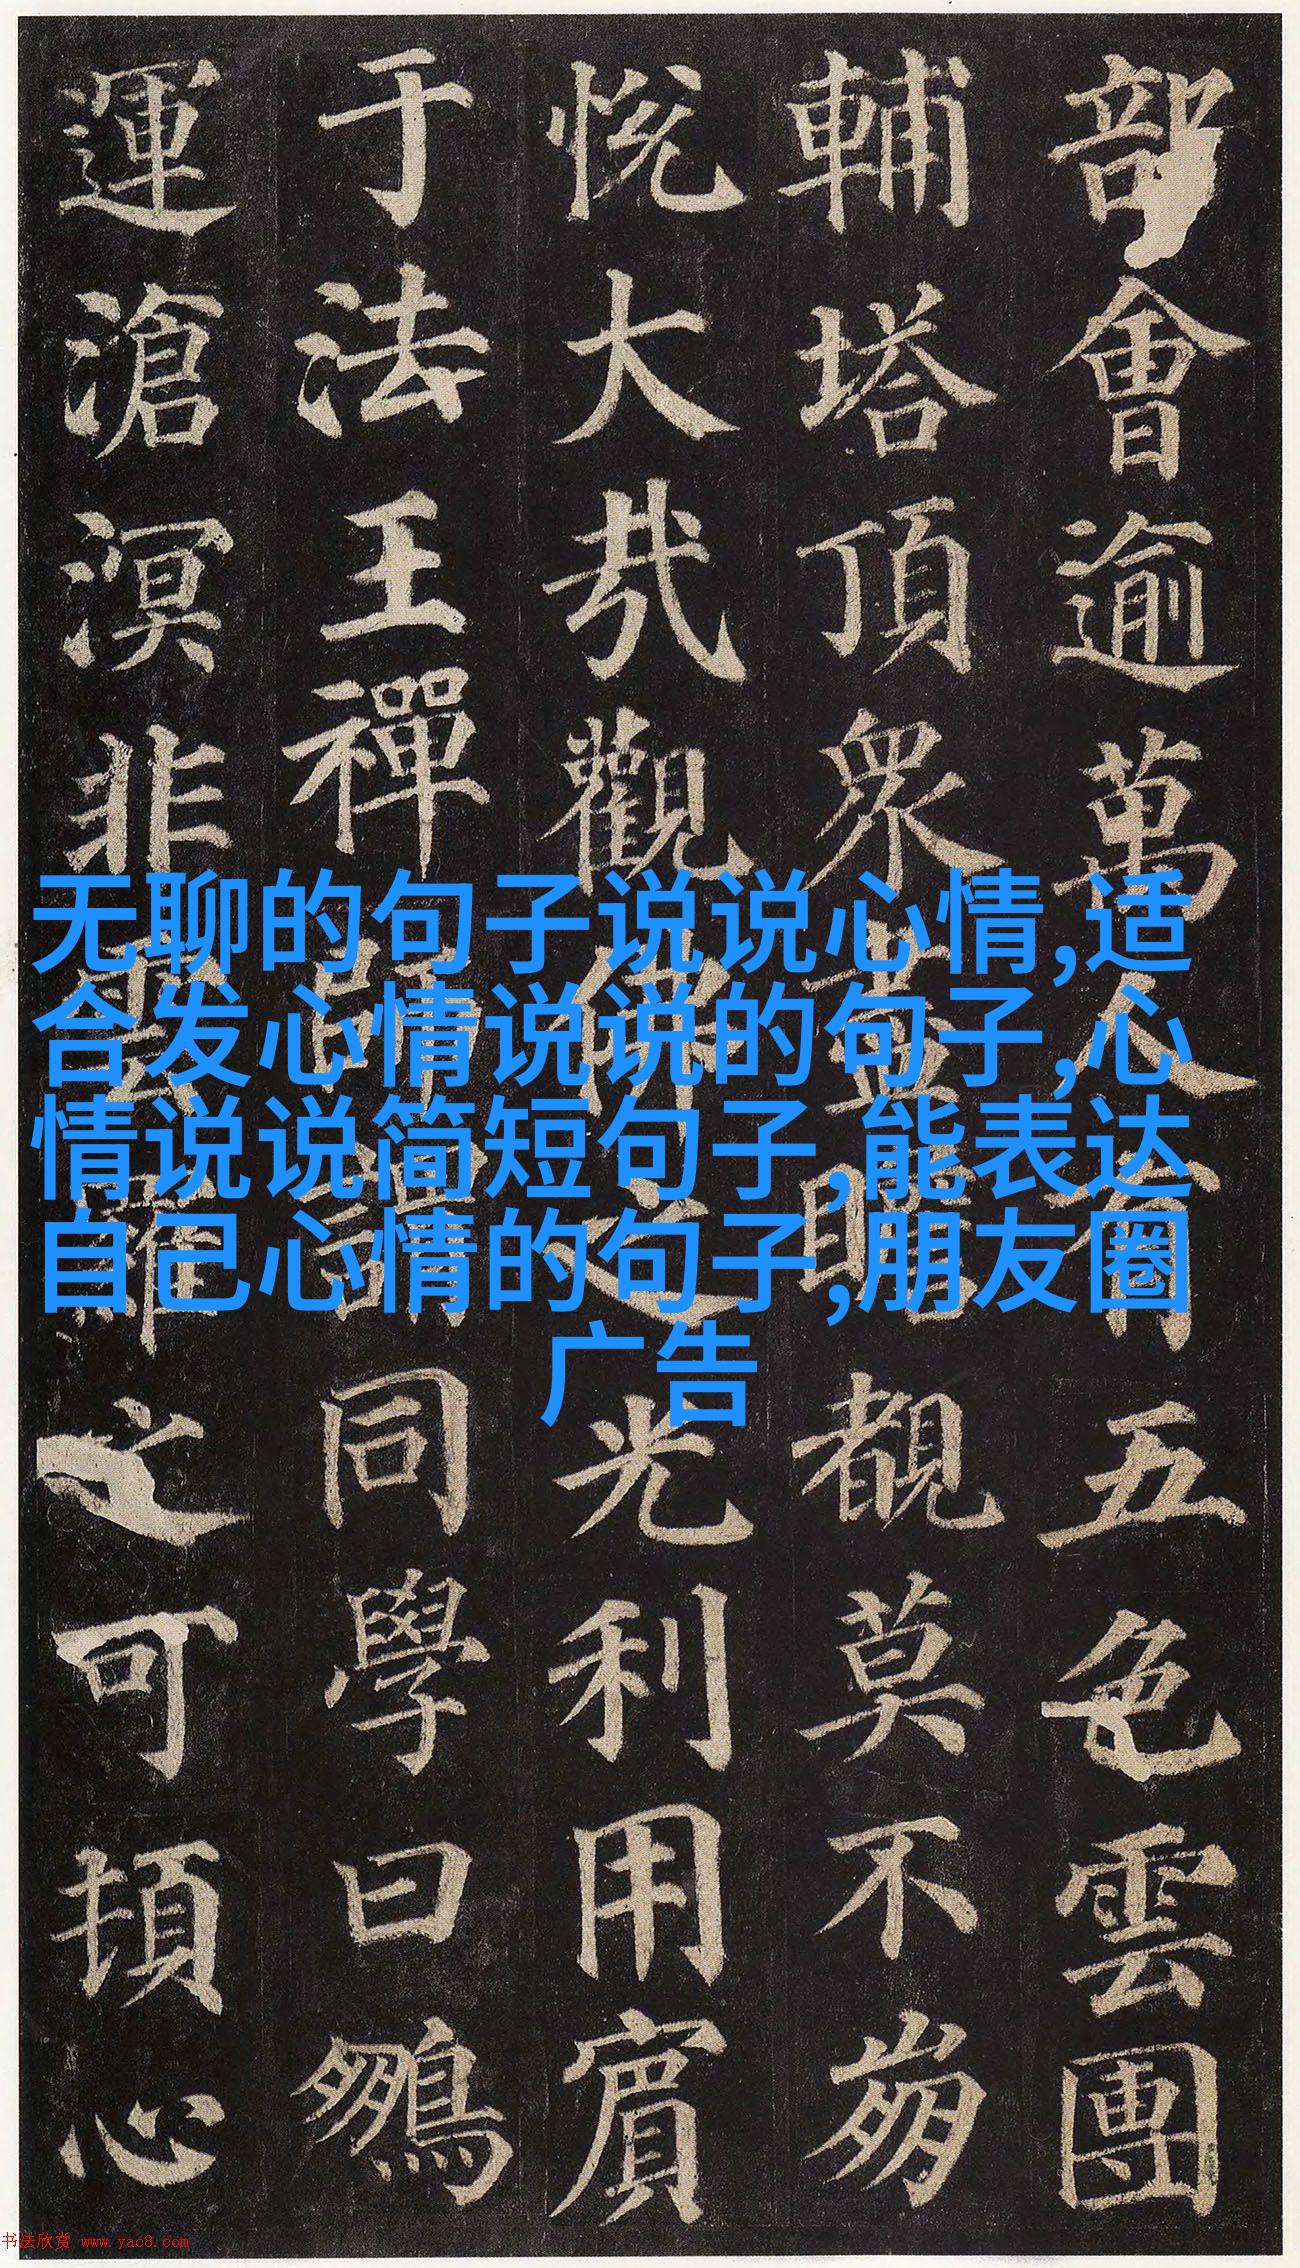 部會逾萬人有五色雲團
輔塔頂眾盡瞻覩莫不崩
悅大哉觀佛之光利用賓
于法王禪師謂同學曰鵬
運滄溟非雲羅之可頓心
无聊的句子说说心情,适
合发心情说说的句子,心
情说说简短句子,能表达
自己心情的句子,朋友圈
广告
书法欣赏 www.yac8.com